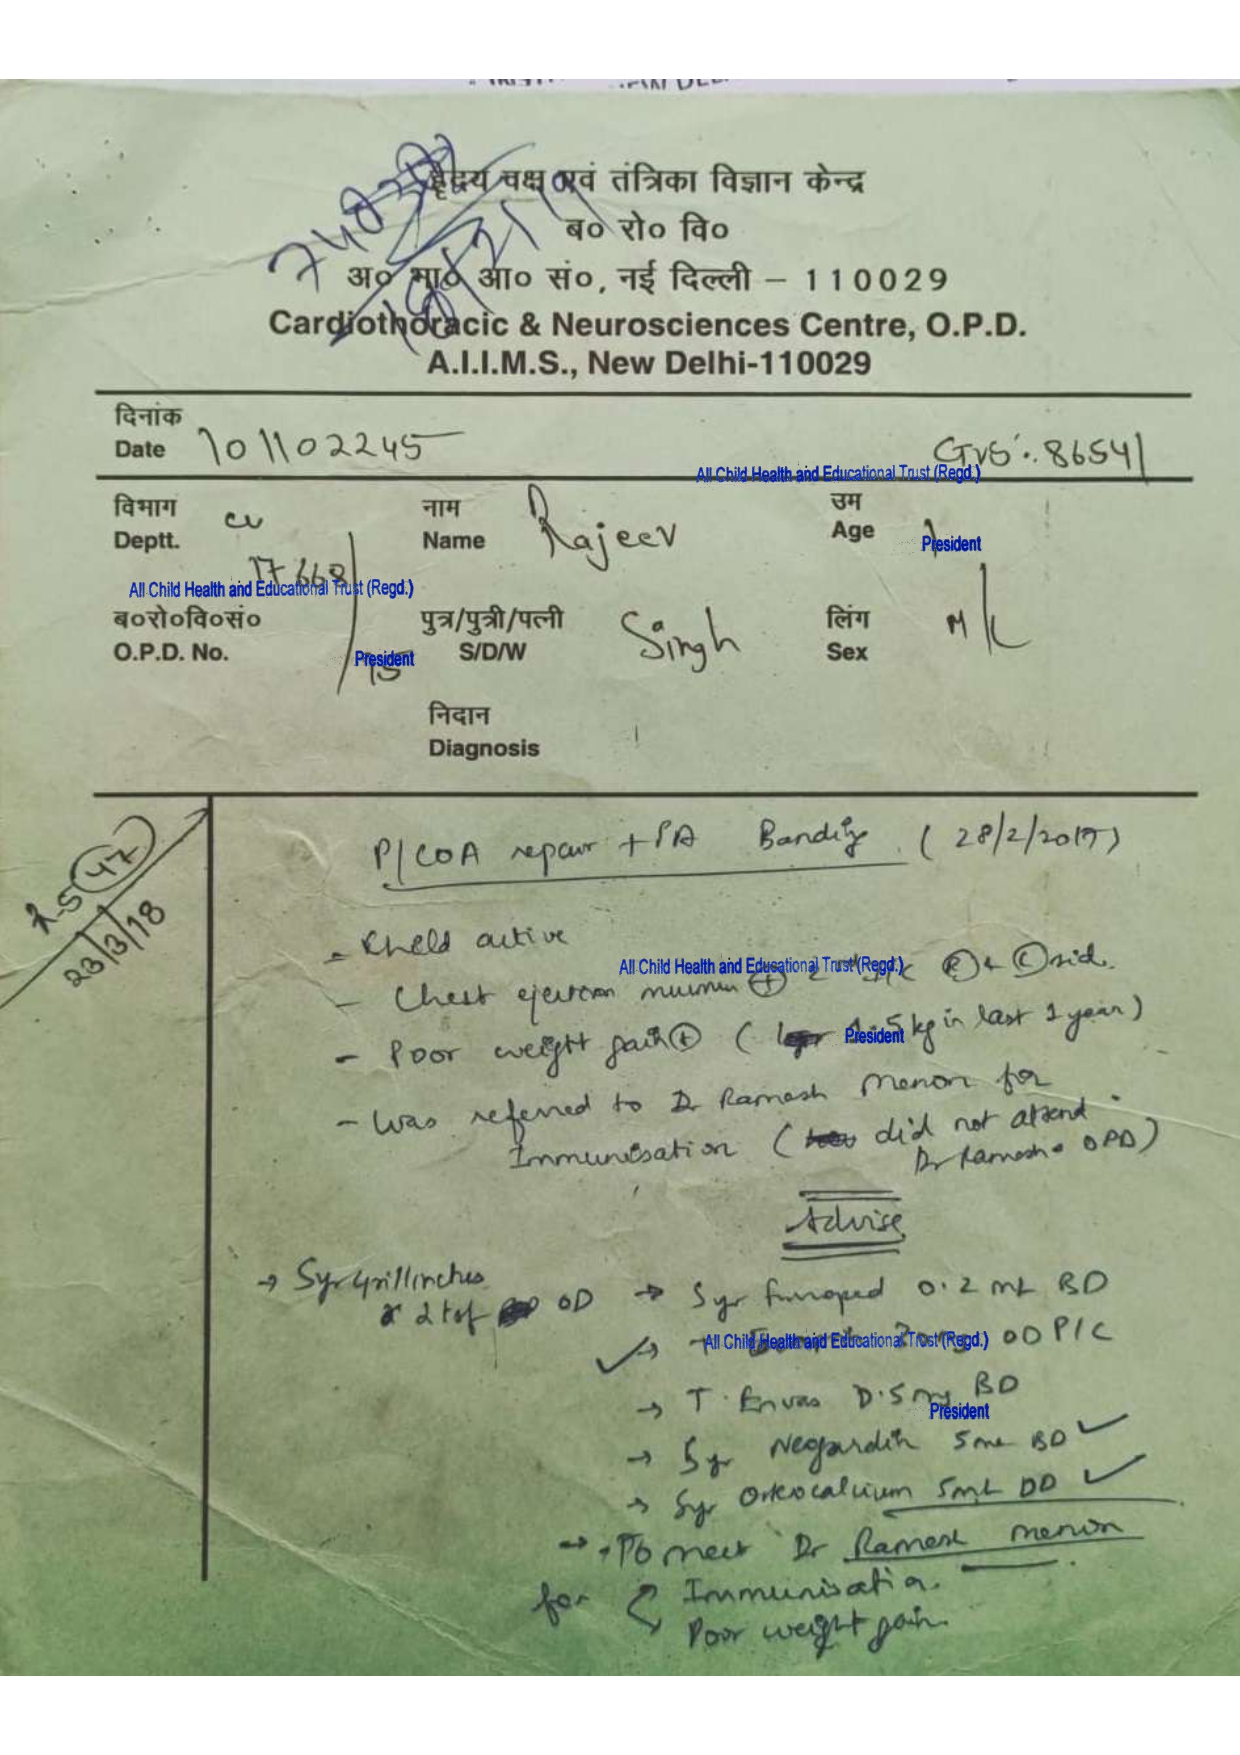 हृदय वक्ष एवं तंत्रिका विज्ञान केन्द्र
ब० रो० वि०
अ० भा० आ० सं०, नई दिल्ली – 110029
Cardiothoracic & Neurosciences Centre, O.P.D.
A.I.I.M.S., New Delhi-110029
दिनांक
Date 101102245
8654
All Child Health and Educational Trust (Regd.)
विभाग
Deptt.
नाम
Name Rajeev
उम
Age
President
17668
All Child Health and Educational Trust (Regd.)
ब०रो०वि०सं०
O.P.D. No. 15
President
पुत्र/पुत्री/पत्नी
S/D/W Singh
लिंग
Sex M
निदान
Diagnosis
47
23/3/18
P/COA repair + PA Banding (28/2/2017)
- Child active
All Child Health and Educational Trust (Regd.)
- Chest ejection murmur
- Poor weight gain (+) ( kg in last 1 year)
President
- Was referred to Dr Ramesh Menon for
Immunisation ( did not attend
Dr Ramesh OPD)
Advise
→ Syr
OD
→ Syr 0.2 mL BD
All Child Health and Educational Trust (Regd.)
OD P/C
→ T. Envas D.5mg BD
President
→ Syr 5mL BD
→ Syr Osteocalcium 5mL OD
→ To meet Dr Ramesh Menon
for Immunisation.
Poor weight gain.